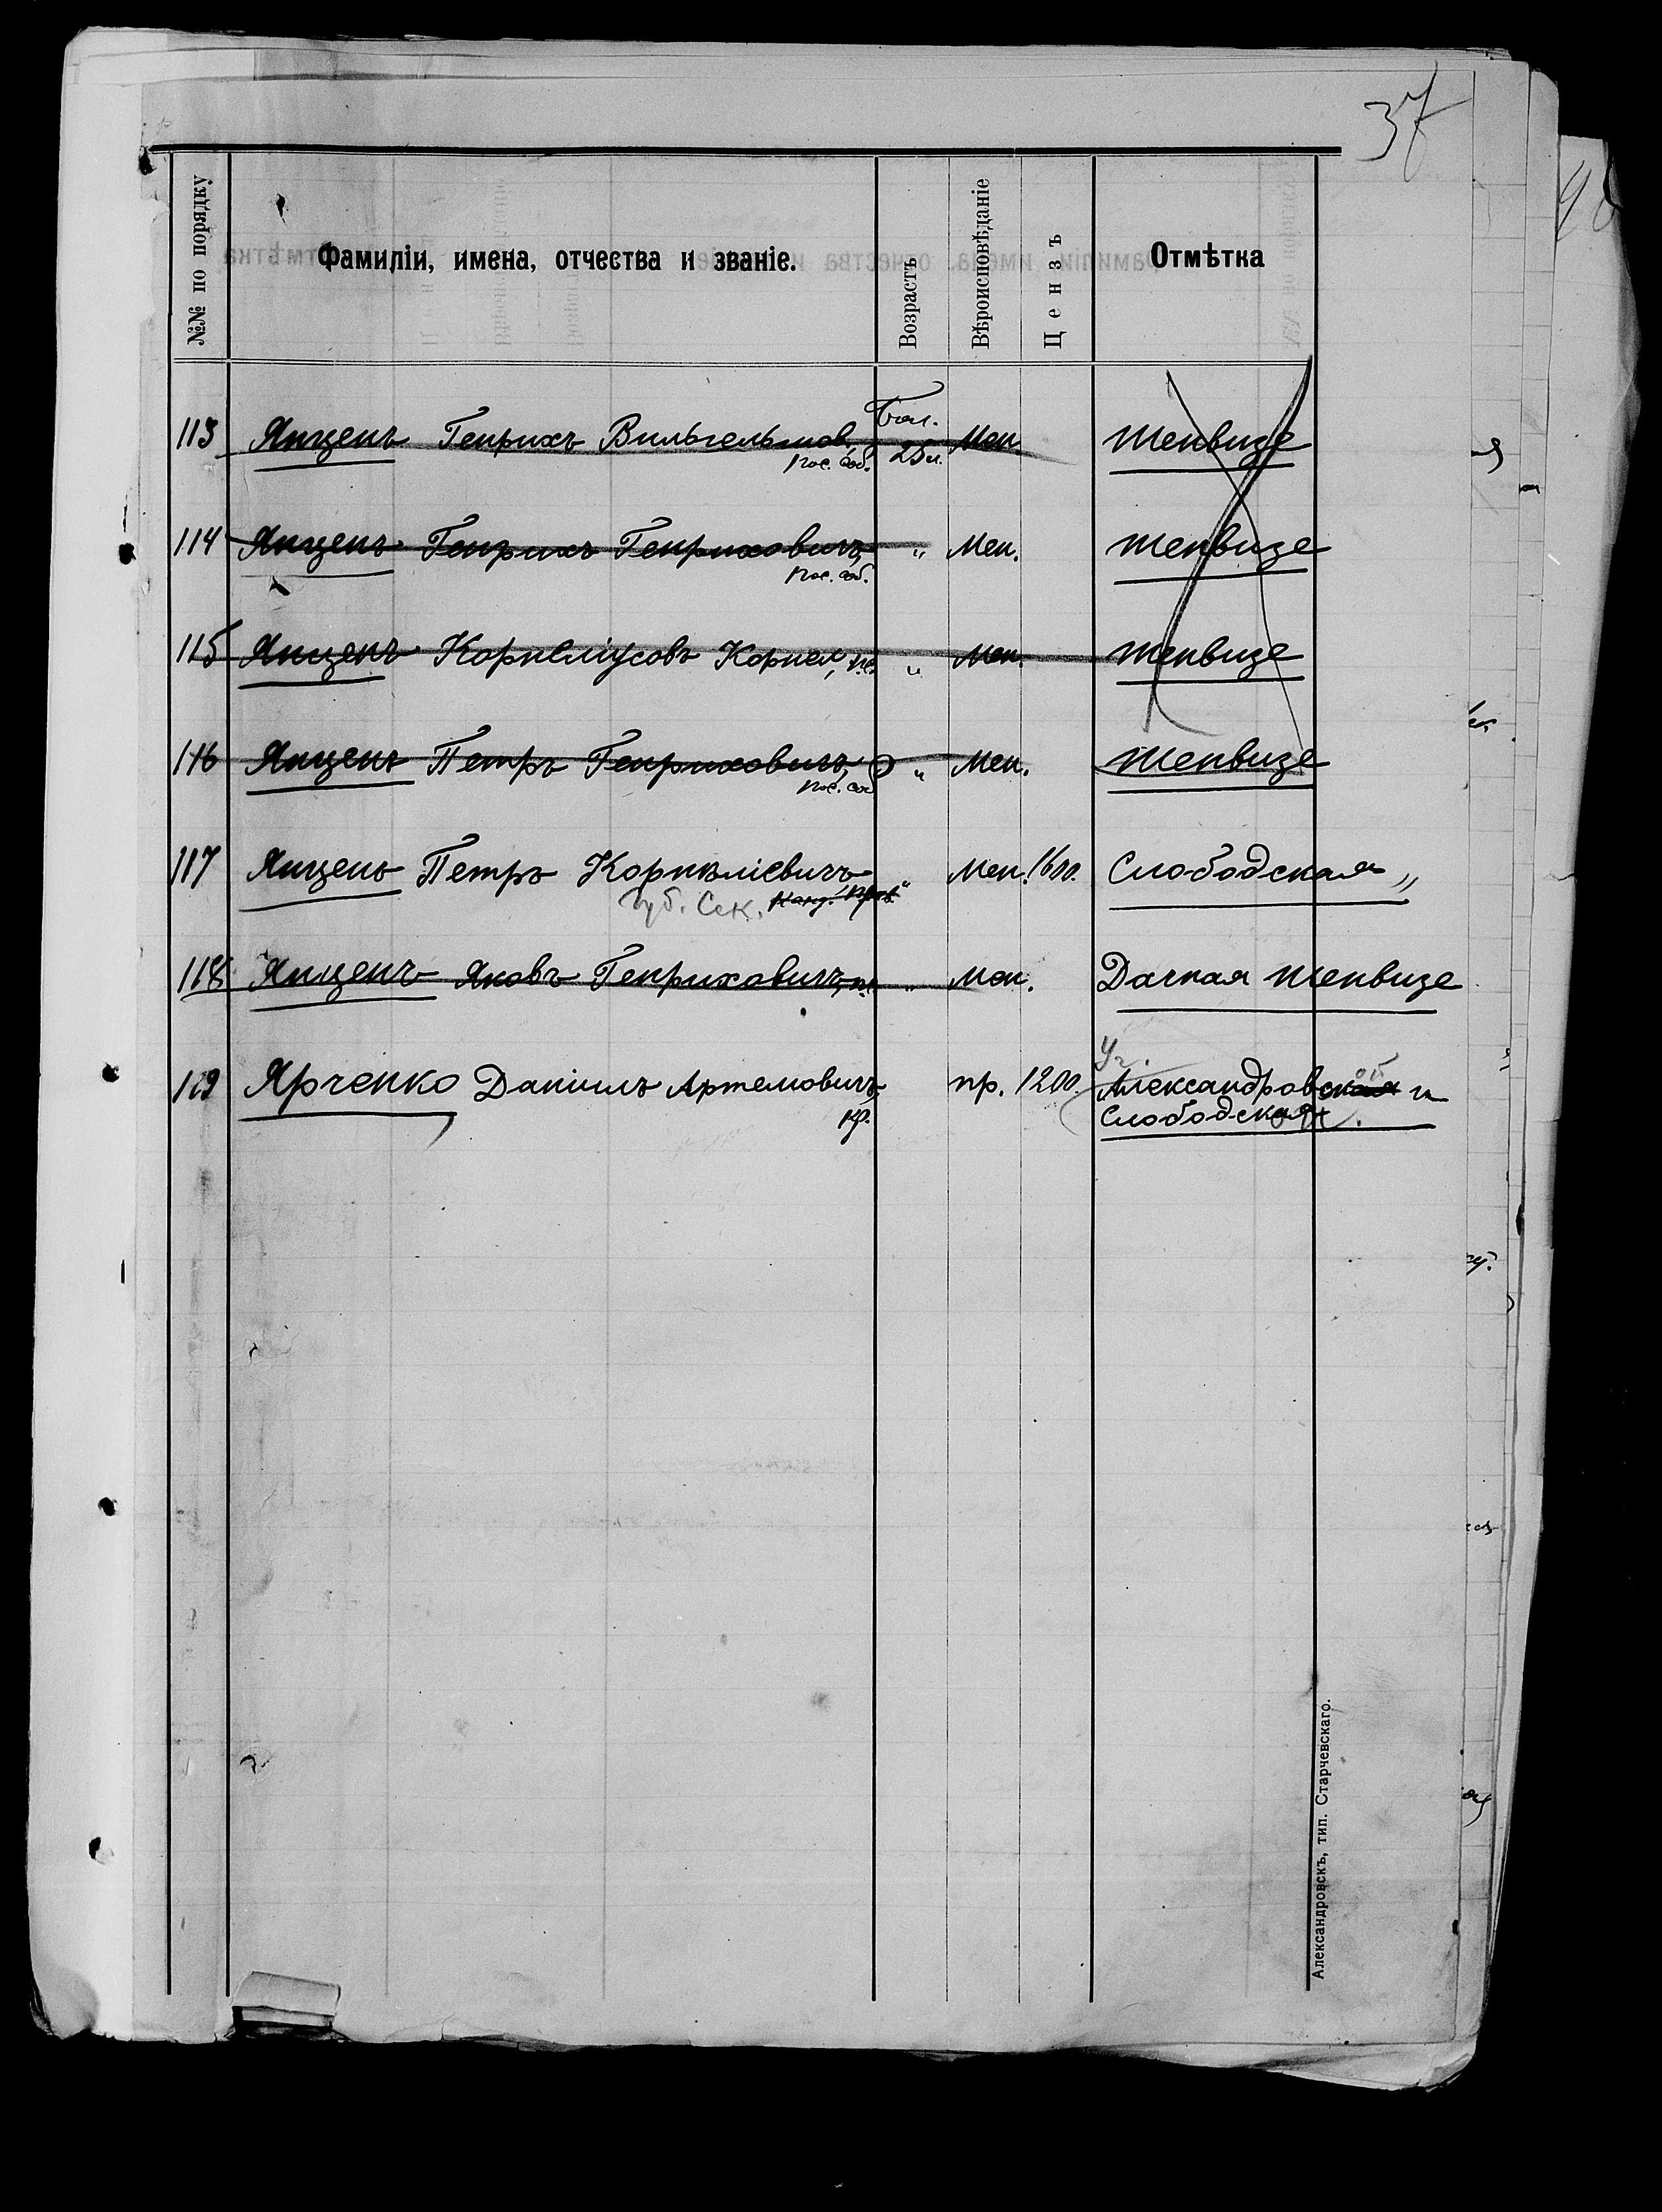 37
№№ по порядку
Фамиліи, имена, отчества и званіе.
Возрастъ
Вѣроисповѣданіе
Цензъ
Отмѣтка
Бол.
113 Янценъ Генрихъ Вильгельмов, 25 л. Мен. Шенвизе
пос. соб.
114 Янценъ Генрихъ Генриховичъ, " Мен. Шенвизе
пос. соб.
115 Янценъ Корнеліусовъ Корнел, " Мен. Шенвизе
116 Янценъ Петръ Генриховичъ, " Мен. Шенвизе
пос. соб
117 Янценъ Петръ Корнеліевичъ " Мен. 1600. Слободская "
Губ. Сек.
118 Янценъ Яковъ Генриховичъ, " Мен. Дачная Шенвизе
Уг.
119 Ярченко Даніилъ Артемовичъ, пр. 1200. Александровская и
кр. Слободская
Александровскъ, тип. Старчевскаго.